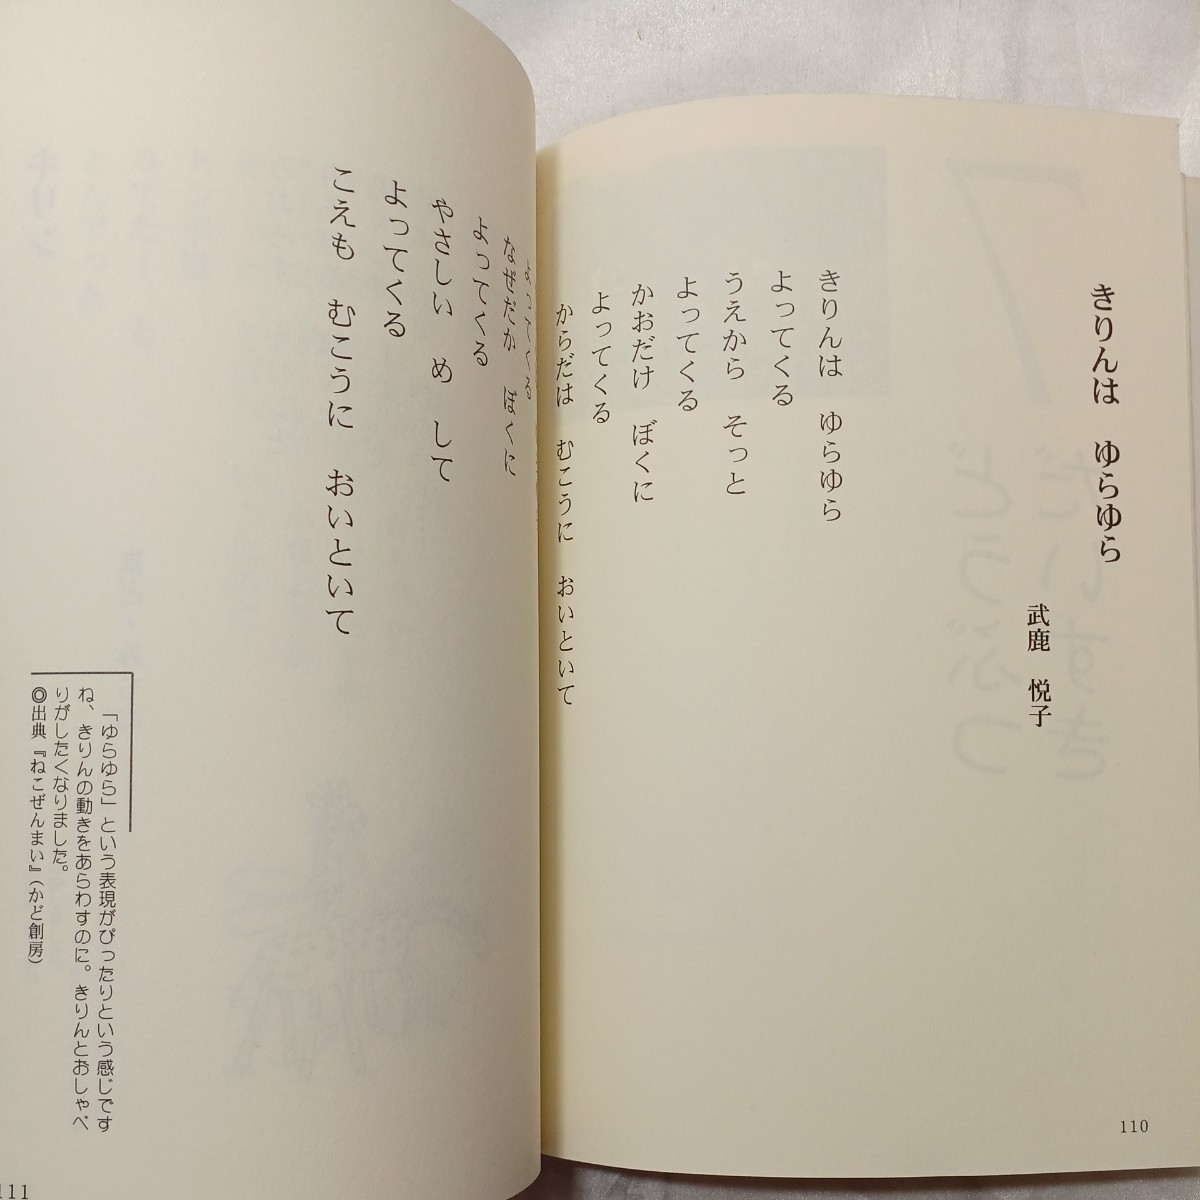 きりんは　ゆらゆら
武鹿　悦子
きりんは　ゆらゆら
よってくる
うえから　そっと
よってくる
かおだけ　ぼくに
よってくる
からだは　むこうに　おいといて
110
よってくる
なぜだか　ぼくに
よってくる
やさしい　め　して
よってくる
こえも　むこうに　おいといて
「ゆらゆら」という表現がぴったりという感じです
ね、きりんの動きをあらわすのに。きりんとおしゃべ
りがしたくなりました。
◎出典『ねこぜんまい』（かど創房）
111